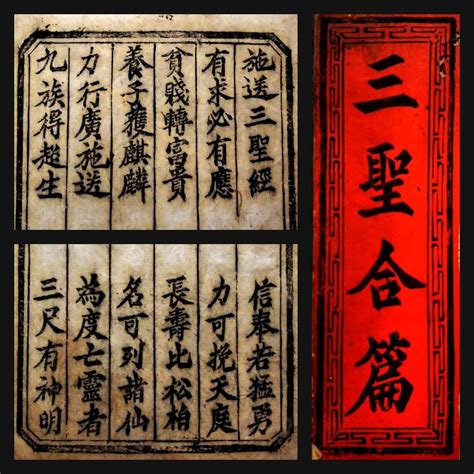 三聖合篇
施送三聖經
有求必有應
貧賤轉富貴
養子獲麒麟
力行廣施送
九族得超生
信奉若猛勇
力可挽天庭
長壽比松柏
名可列諸仙
為度亡靈者
三尺有神明